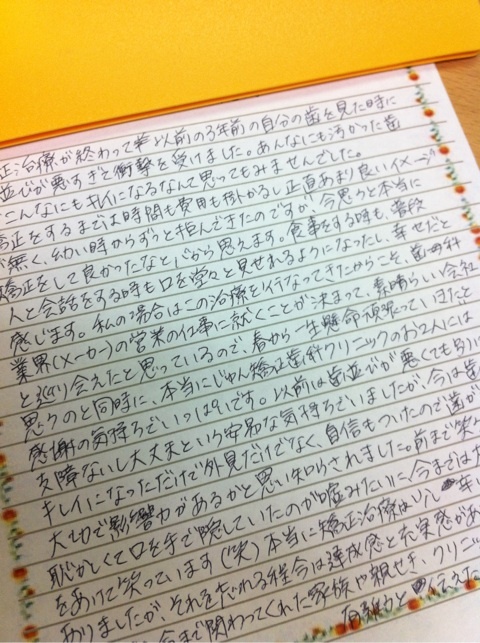 正治療が終わって、以前の3年前の自分の歯を見た時に
並びが悪すぎと衝撃を受けました。あんなにも汚かった歯
こんなにもキレイになるなんて思ってもみませんでした。
矯正をするまでは時間も費用も掛かるし正直あまり良いイメージ
が無く、幼い時からずっと拒んできたのですが、今思うと本当に
矯正をして良かったなと心から思えます。食事をする時も、普段
人と会話をする時も口を堂々と見せれるようになったし、幸せだと
感じます。私の場合はこの治療を行なってきたからこそ、歯科
業界(メーカー)の営業の仕事に就くことが決まって、素晴らしい会社
と巡り会えたと思っているので、春から一生懸命頑張っていけたと
思うのと同時に、本当にじゅん矯正歯科クリニックのお2人には
感謝の気持ちでいっぱいです。以前は歯並びが悪くても別に
支障ないし大丈夫という安易な気持ちでいましたが、今は歯
キレイになっただけで外見だけでなく、自信もついたので歯が
大切で影響力があるかと思い知らされました。前まで笑う
恥かしくて口を手で隠していたのが嘘みたいに、今までは大
をあけて笑っています(笑)本当に矯正治療は
ありましたが、それを忘れる程今は達成感と充実感があ
今まで関わってくれた家族や親せき、クリニッ